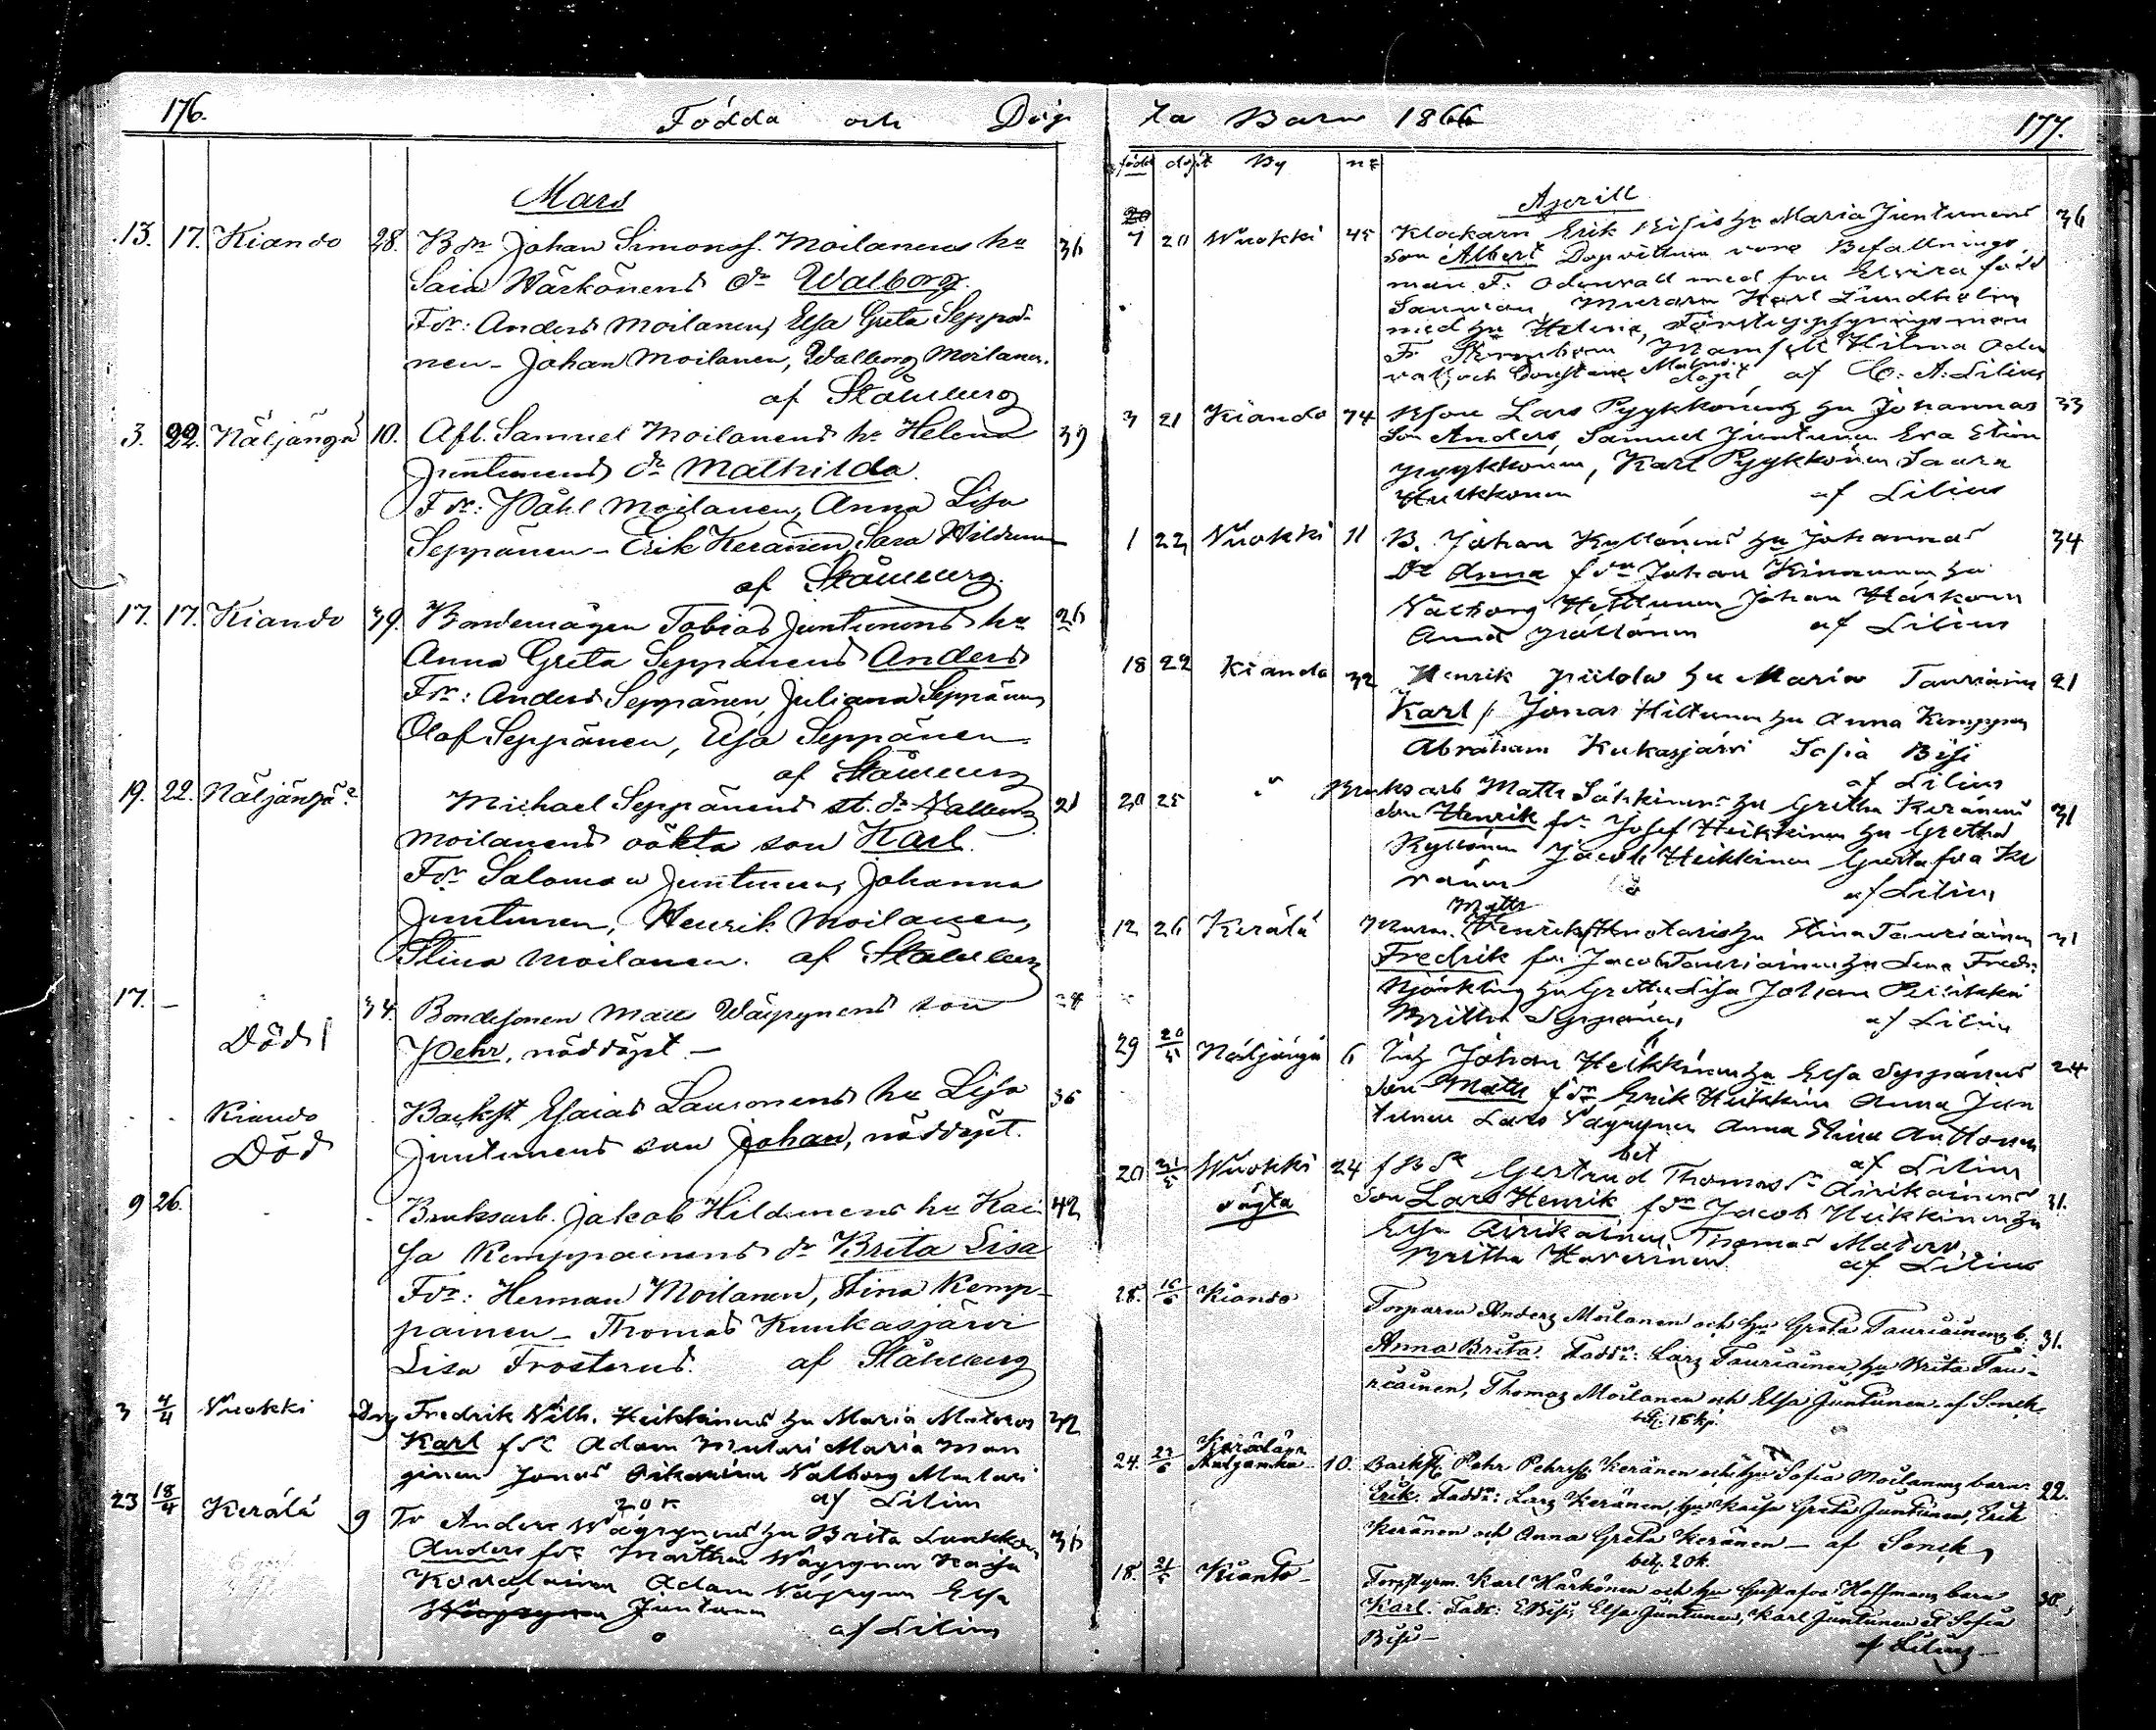 176.
Födda och Döp
Mars
13. 17. Kiando 28. Bdn Johan Simonss. Moilanens hu 36
Saia Härkönens dr Walborg.
Fdr: Anders Moilanen, Elsa Greta Seppä-
nen - Johan Moilanen, Walborg Moilanen.
af Ståhlberg
3. 22. Näljängä 10. Afl. Samuel Moilanens hu Helena 39
Juntunens dr Mathilda.
Fdr: Påhl Moilanen, Anna Lisa
Seppänen - Erik Keränen, Sara Hildunen
af Ståhlberg.
17. 17. Kiando 39. Bondemågen Tobias Juntunens hu 26
Anna Greta Seppänens Anders
Fdr: Anders Seppänen, Juliana Seppänen
Olof Seppänen, Elsa Seppänen.
af Ståhlberg
19. 22. Näljängä Michael Seppänens dr Walborg 21
Moilanens oäkta son Karl.
Fdr Salomon Juntunen, Johanna
Juntunen, Henrik Moilanen,
Stina Moilanen. af Ståhlberg
17. - 34. Bondesonen Matts Wäyrynens son
Död Pehr, nöddöpt -
Kiando Backst. Esaias Lauronens hu Lisa 36
Död Juntunens son Johan, nöddöpt.
9 26. Bruksarb. Jakob Hildunens hu Kai 42
sa Kemppainens dr Brita Lisa
Fdr: Herman Moilanen, Stina Kemp-
painen - Thomas Kuukasjärvi
Lisa Frosterus. af Ståhlberg
3 4/4 Wuokki Fredrik Wilh. Heikkinens hu Maria Materos 32
Karl fdr Adam Mulari Maria Man
ginen Jonas Walborg Mulari
af Lilius
23 18/4 Kerälä 9 To Anders Wäyrynens hu Brita 36
Anders fdr Märtha Wäyrynen Kaisa
Kovalainen Adam Wäyrynen Elsa
Juntunen
af Lilius
ta Barn 1866
177.
född döpt By no
Aprill
7 20 Wuokki 45 Klockarn Erik Bisis hu Maria Juntunens 36
son Albert Dopvittnen voro Befallnings
man F. Odenwall med fru Elvira född
Murarn Karl Lundholm
med hu Helena,
F. Mamsell Hilma Oden
wall och döpt af C. A. Lilius
3 21 Kiando 74 Lars Pyykkönens hu Johannas 33
son Anders, Samuel Juntunen Eva Stina
Pyykkönen, Karl Pyykkönen Saara
af Lilius
1 22 Wuokki 11 B. Johan Kyllönens hu Johannas 34
Dr Anna fdr Johan Kinnunen hu
Walborg Heikkinen Johan Härkönen
Anna Kyllönen af Lilius
18 22 Kiando 32 Henrik Piilola hu Maria Tauriainen 21
Karl f. Jonas Hiltunen hu Anna Kemppainen
Abraham Kukasjärvi Sofia Bisi
af Lilius
20 25 " Bruksarb Matts hu Gretha Keränens 31
son Henrik fdr Josef Heikkinen hu Gretha
Kyllönen Jacob Heikkinen Gustafva Ke
ränen af Lilius
Matts
12 26 Kerälä Murm. hu Stina Tauriainen 31
Fredrik fdr Jacob Tauriainen hu Lena Fredr.
Björkling hu Gretha Lisa Johan
Britha Seppänen af Lilius
29 Näljängä 6 Johan Heikkinen hu Elsa Seppänens 24
son Matts fdr Erik Heikkinen Anna Jun
tunen Lars Väyrynen Anna Stina Anttonen
bet af Lilius
20 Wuokki 24 Gertrud Thomas dr Airikainens
oägta son Lars Henrik fdr Jacob Heikkinen hu 31.
Elsa Airikainen Thomas Matero
Britha Haverinen af Lilius
28. 16/6 Kiando Torparen Anders Moilanen och hu Greta Tauriainens b. 31.
Anna Brita. Faddr: Lars Tauriainen, hu Brita Tau-
riainen, Thomas Moilanen och Elsa Juntunen. af Sonck
24. 23/6 Kerälä 10. Backst. Pehr Pehrss. Keränen och hu Sofia Moilanens barn 22.
Erik. Faddr: Lars Keränen, hu Kaisa Greta Juntunen, Erik
Keränen och Anna Greta Keränen - af Sonck
bet. 20k.
18. Kianto - Karl Härkönen och hu Gustafva Hoffmans barn 30.
Karl. Faddr: E. Bisi, Elsa Juntunen, Karl Juntunen & Sofia
Bisi - af Lilius -